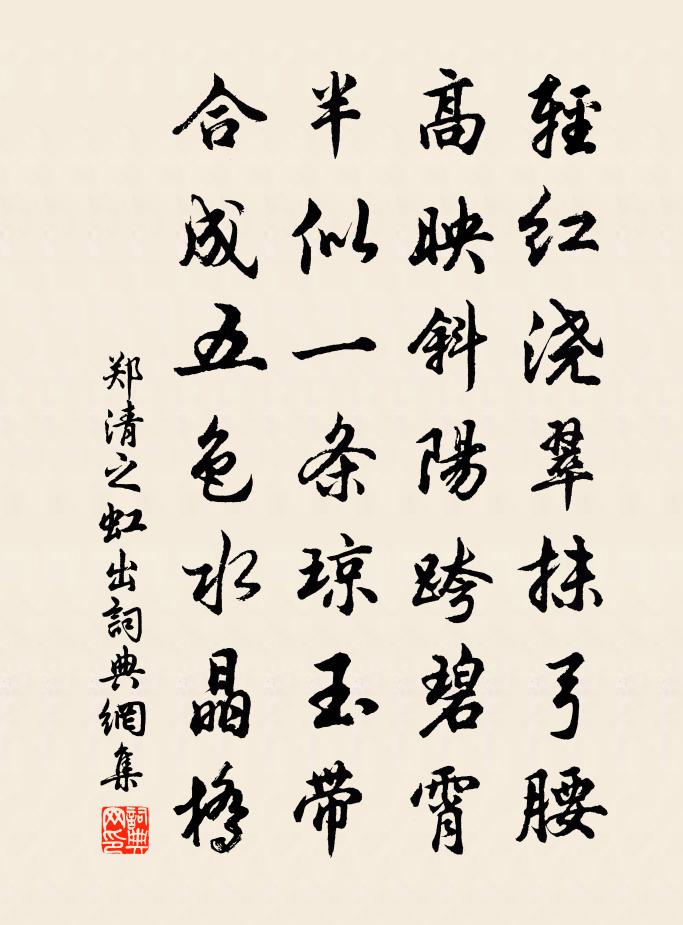 輕紅浇翠抹弓腰
高映斜陽跨碧霄
半似一条琼玉带
合成五色水晶橋
郑清之虹出詞典網集
詞典
网印